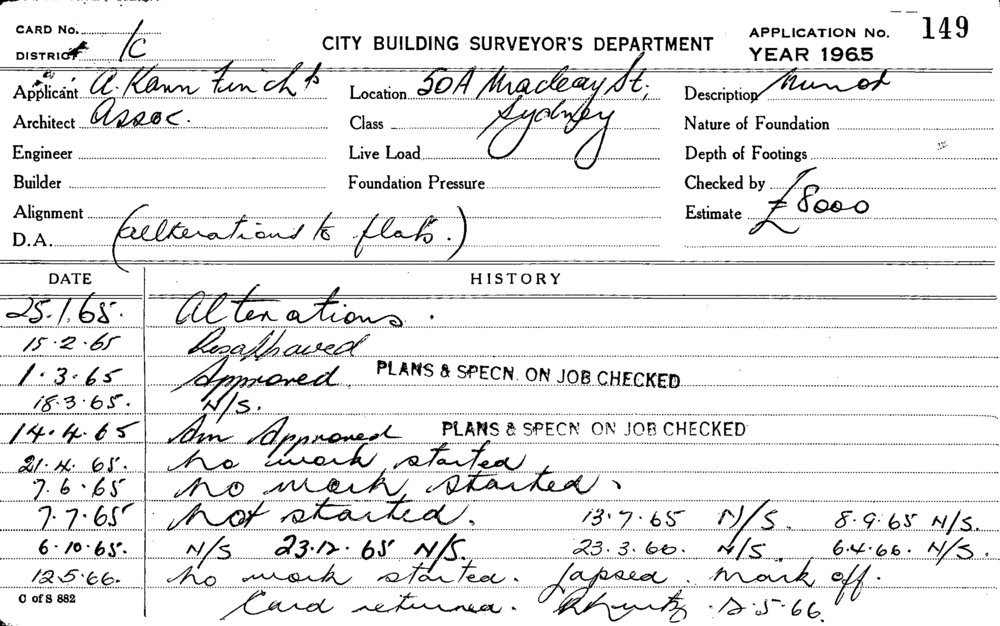 CARD No. 1C APPLICATION No. 149
DISTRICT CITY BUILDING SURVEYOR'S DEPARTMENT YEAR 1965
Applicant A. Kann Finch & Location 50A Macleay St; Description Minor
Architect Assoc. Class Sydney Nature of Foundation
Engineer Live Load Depth of Footings
Builder Foundation Pressure Checked by
Alignment Estimate £8000
D.A. (alterations to flats.)
DATE HISTORY
25.1.65. Alterations.
15.2.65 Disapproved
1.3.65 Approved PLANS & SPECN. ON JOB CHECKED
18.3.65. N/S.
14.4.65 Am Approved PLANS & SPECN ON JOB CHECKED
21.4.65. No work started
7.6.65 No work started.
7.7.65 Not started. 13.7.65 N/S. 8.9.65 N/S.
6.10.65. N/S 23.12.65 N/S. 23.3.66. N/S 6.4.66. N/S.
12.5.66. No work started. Lapsed. Mark off.
C of S 882 Card returned. 12.5.66.